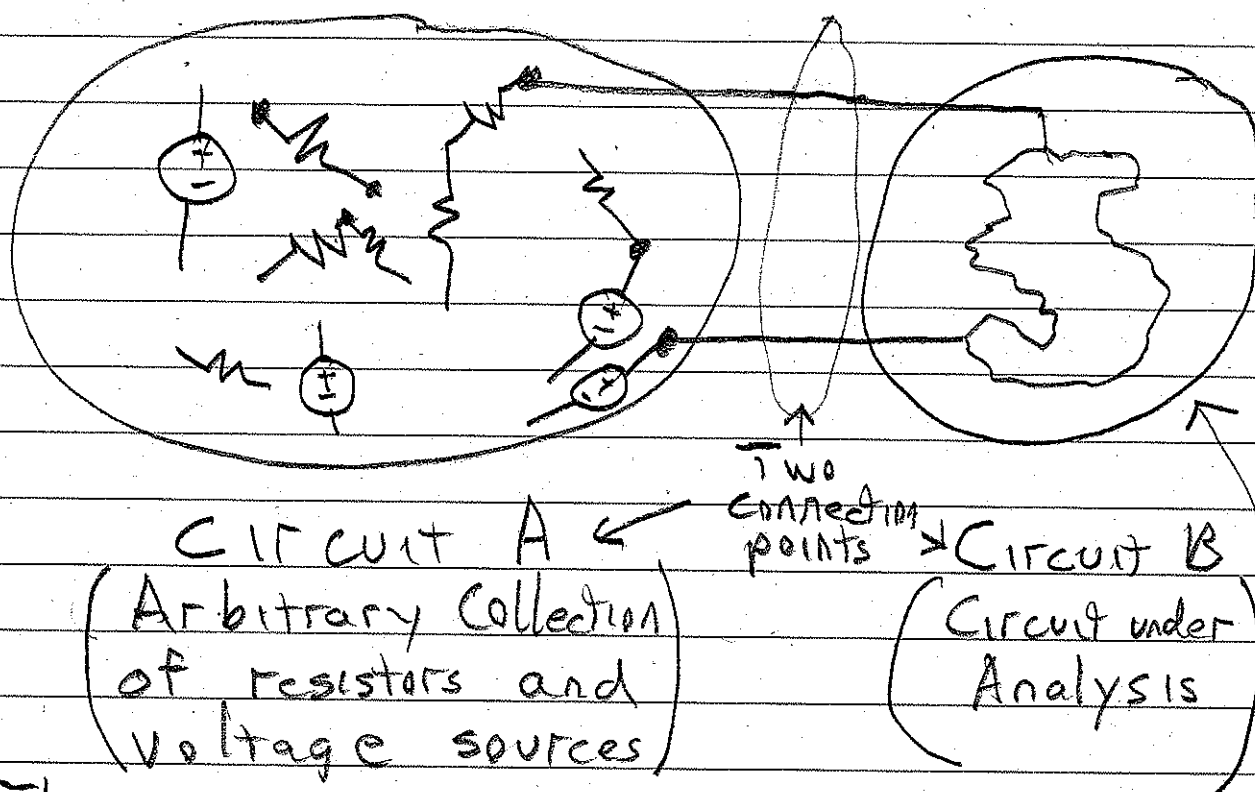 Two
connection
points
Circuit A
(Arbitrary Collection
of resistors and
voltage sources)
Circuit B
(Circuit under
Analysis)